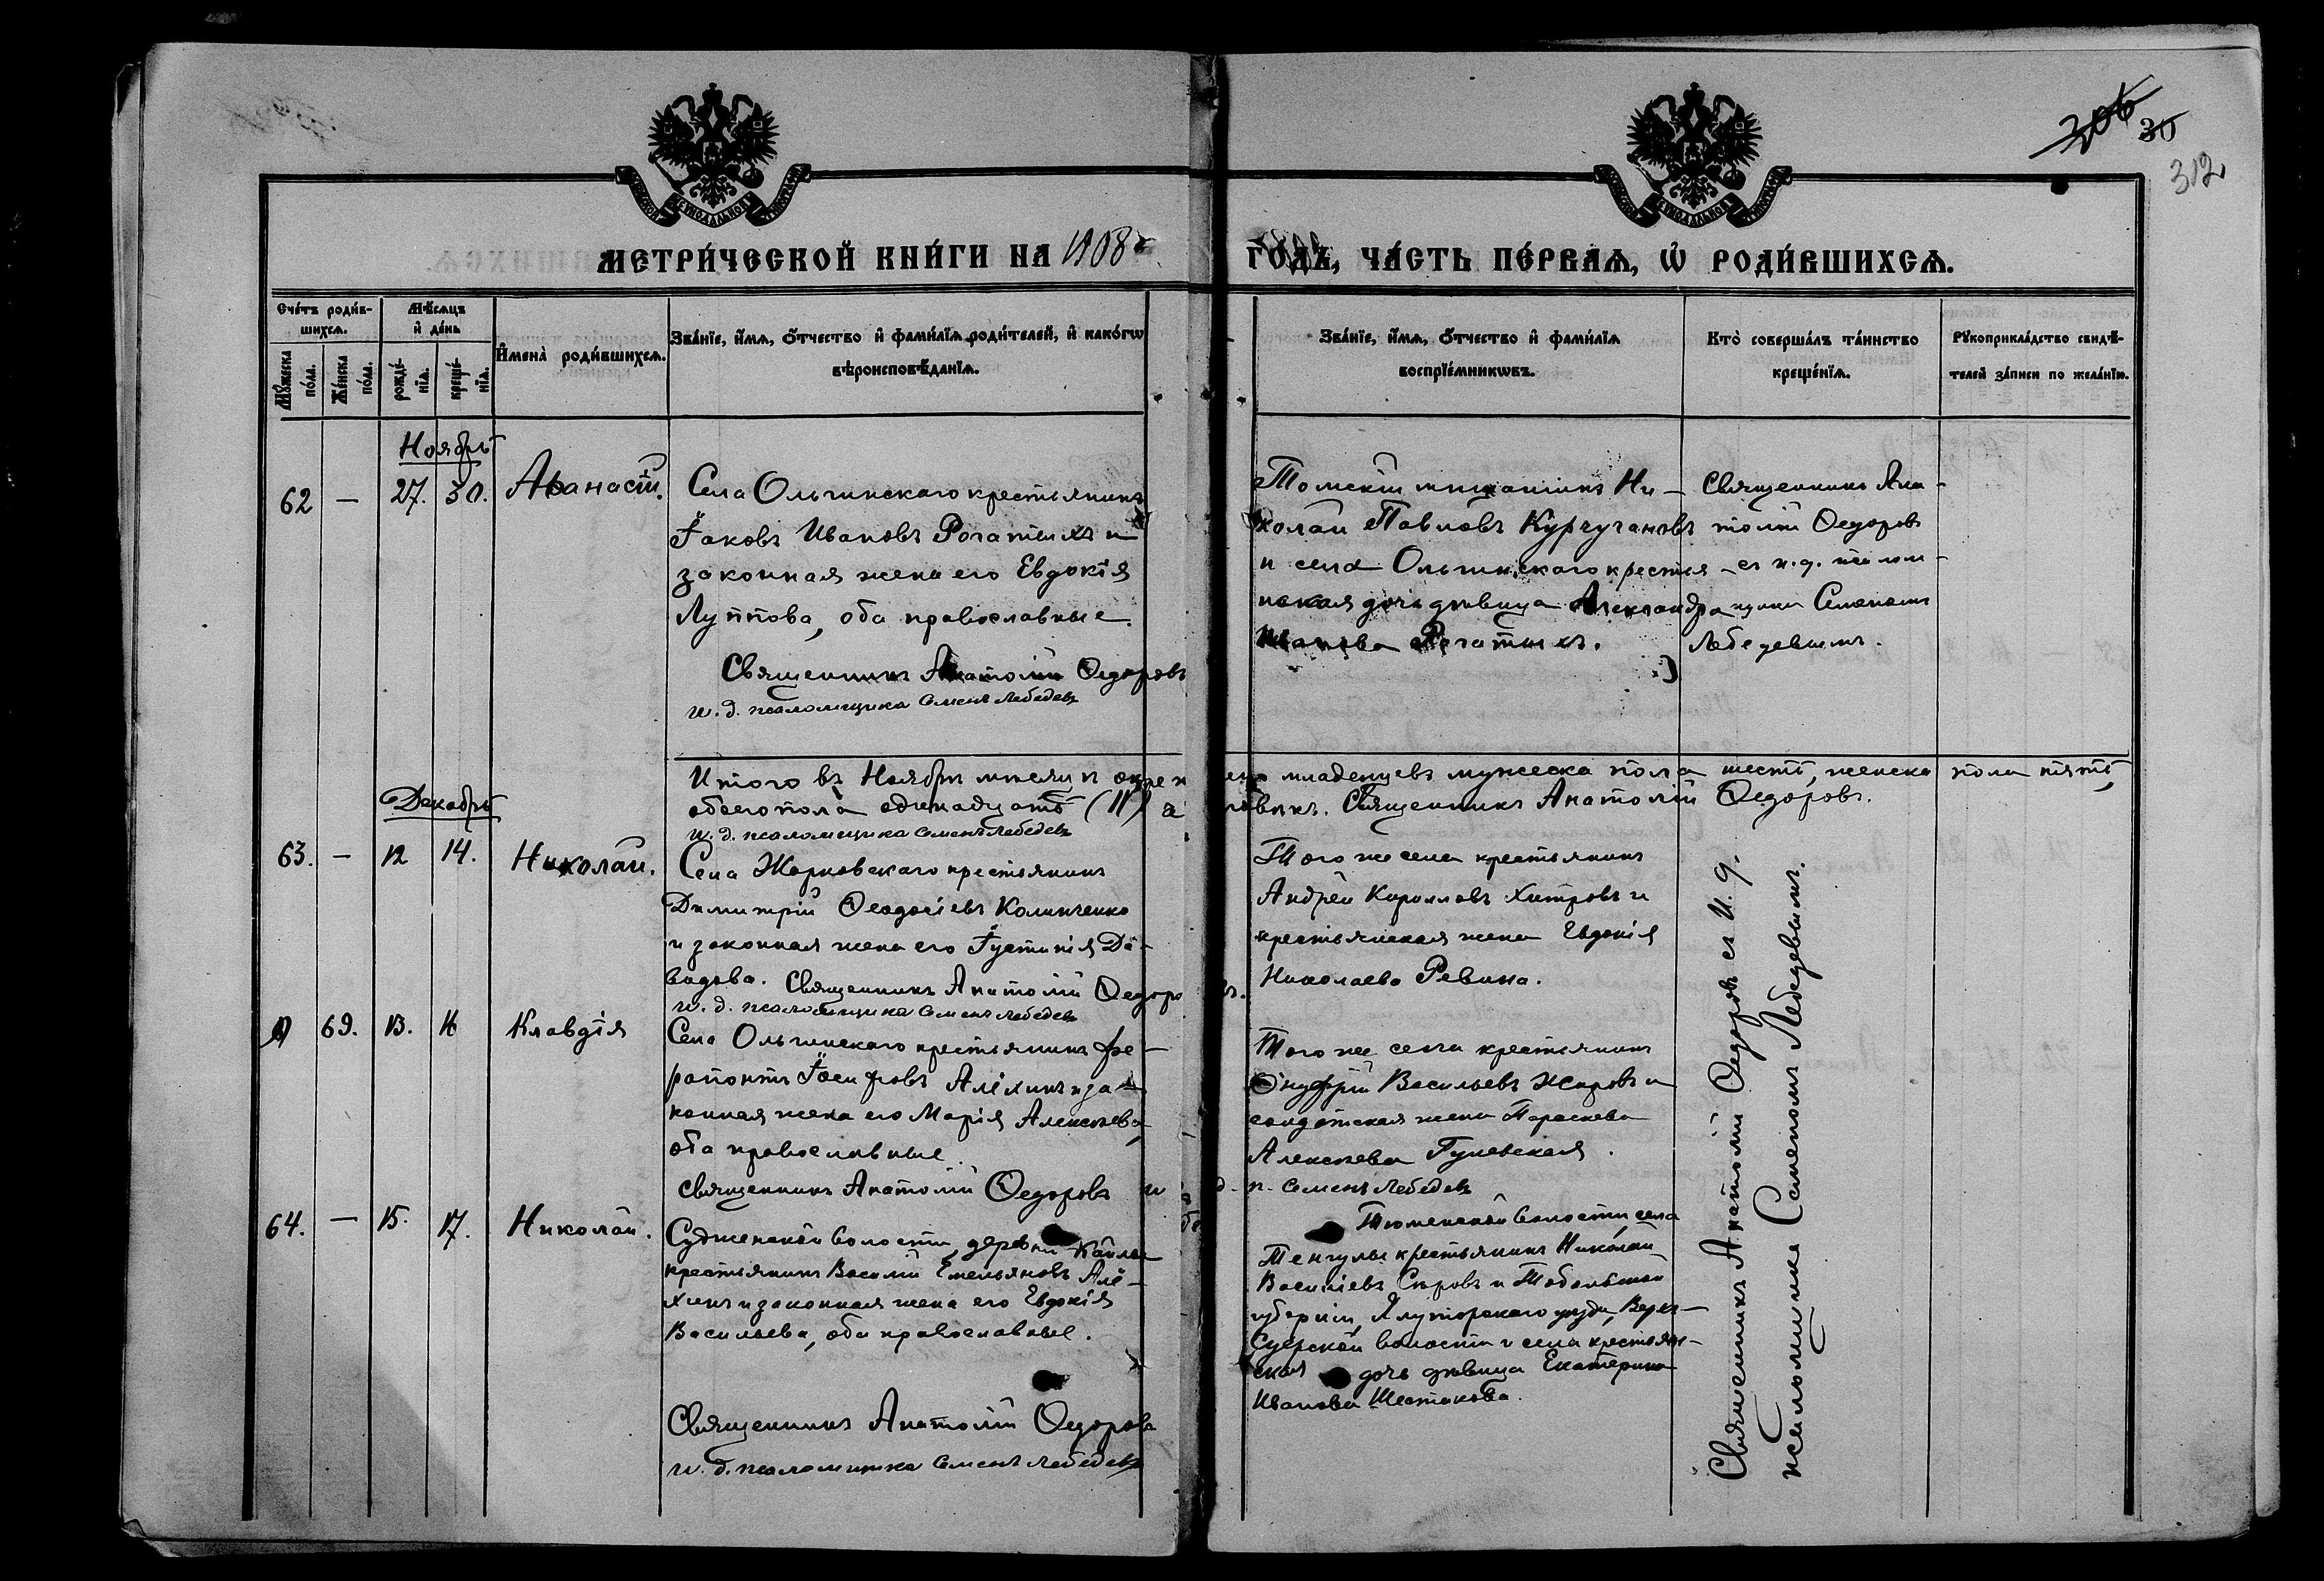 206 30
312
МЕТРИ́ЧЕСКОЙ КНИ́ГИ НА 1908 г
ГОДЪ, ЧА́СТЬ ПЕ́РВАѦ, Ѡ РОДИ́ВШИХСѦ.
Сче́тъ роди́в-
шихсѧ.
Мꙋ́жеска
по́ла.
Же́нска
по́ла.
Мѣ́сѧцъ
и҆ де́нь
рожде́-
нїѧ.
креще́-
нїѧ.
И҆мена̀ роди́вшихсѧ.
Зва́нїе, и҆́мѧ, ѻ҆́тчество и҆ фами́лїѧ роди́телей, и҆ како́гѡ
вѣроисповѣ́данїѧ.
Зва́нїе, и҆́мѧ, ѻ҆́тчество и҆ фами́лїѧ
воспрїе́мникѡвъ.
Кто̀ соверша́лъ та́инство
креще́нїѧ.
Рꙋкоприкла́дство свидѣ́-
телей за́писи по жела́нїю.
Ноябрь
62 — 27. 30. Аѳанасій.
Села Ольгинскаго крестьянинъ
Іаковъ Ивановъ Рогатыхъ и
законная жена его Евдокія
Луппова, оба православные.
Священникъ Анатолій Ѳедоровъ
и. д. псаломщика Семенъ Лебедевъ
Томскій мѣщанинъ Ни-
колай Павловъ Курчугановъ
и села Ольгинскаго крестья-
нская дочь дѣвица Александра
Иванова Рогатыхъ.
Священникъ Ана-
толій Ѳедоровъ
съ и. д. псалом-
щика Семеномъ
Лебедевымъ.
Итого въ Ноябрѣ мѣсяцѣ окрещено младенцевъ мужеска пола шесть, женска пола пять,
обоего пола одинадцать (11) Священникъ Анатолій Ѳедоровъ.
и. д. псаломщика Семенъ Лебедевъ
Декабрь
63. — 12 14. Николай.
Села Жарковскаго крестьянинъ
Димитрій Ѳеодосіевъ Калиниченко
и законная жена его Іустинія Да-
видова. Священникъ Анатолій Ѳедоровъ.
и. д. псаломщика Семенъ Лебедевъ
Того же села крестьянинъ
Андрей Кирилловъ Хитровъ и
крестьянская жена Евдокія
Николаева Ревина.
69. 13. 16 Клавдія
Села Ольгинскаго крестьянинъ Фе-
рапонтъ Іосифовъ Алёхинъ и за-
конная жена его Марія Алексѣева,
оба православные
Священникъ Анатолій Ѳедоровъ и. д. п. Семенъ Лебедевъ
Того же села крестьянинъ
Онуфрій Васильевъ Жаровъ и
солдатская жена Параскева
Алексѣева Гуневская.
64. — 15. 17. Николай.
Судженской волости, деревни Кайлы
крестьянинъ Василій Емельяновъ Алё-
хинъ и законная жена его Евдокія
Васильева, оба православные.
Священникъ Анатолій Ѳедоровъ
и. д. псаломщика Семенъ Лебедевъ
Тюменской волости, села
Тенгулы крестьянинъ Николай
Василіевъ Сѣровъ и Тобольской
губерніи, Ялуторскаго уѣзда, Верх-
Суерской волости и села крестьян-
ская дочь дѣвица Екатерина
Иванова Шестакова.
Священникъ Анатолій Ѳедоровъ съ И. д.
псаломщика Семеномъ Лебедевымъ.